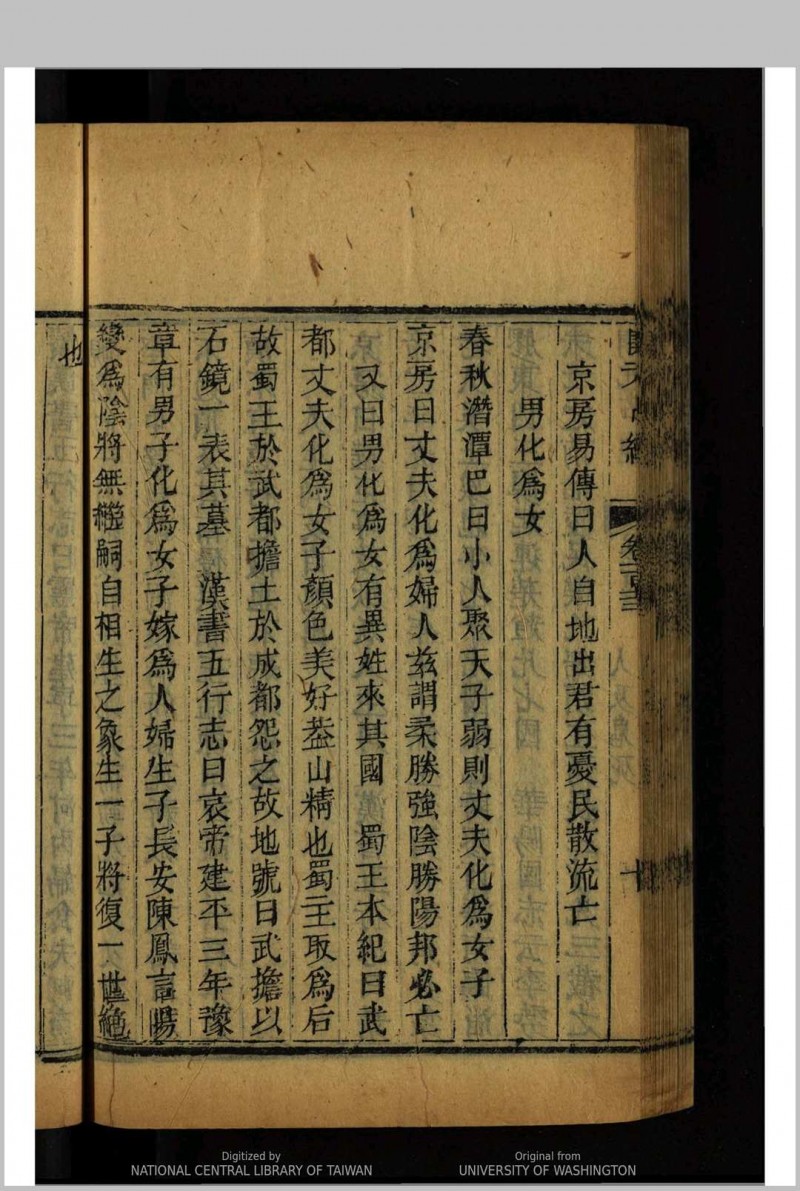 京房易傳曰人自地出君有憂民散流亡
男化爲女
春秋潛潭巴曰小人聚天子弱則丈夫化爲女子
京房曰丈夫化爲婦人兹謂柔勝強陰勝陽邦必亡
又曰男化爲女有異姓來其國 蜀王本紀曰武
都丈夫化爲女子顏色美好葢山精也蜀王取爲后
故蜀王於武都擔土於成都怨之故地號曰武擔以
石鏡一表其墓 漢書五行志曰哀帝建平三年豫
章有男子化爲女子嫁爲人婦生子長安陳鳳言陽
變爲陰將無繼嗣自相生之象生一子將復一世絶
也
Digitized by
NATIONAL CENTRAL LIBRARY OF TAIWAN
Original from
UNIVERSITY OF WASHINGTON